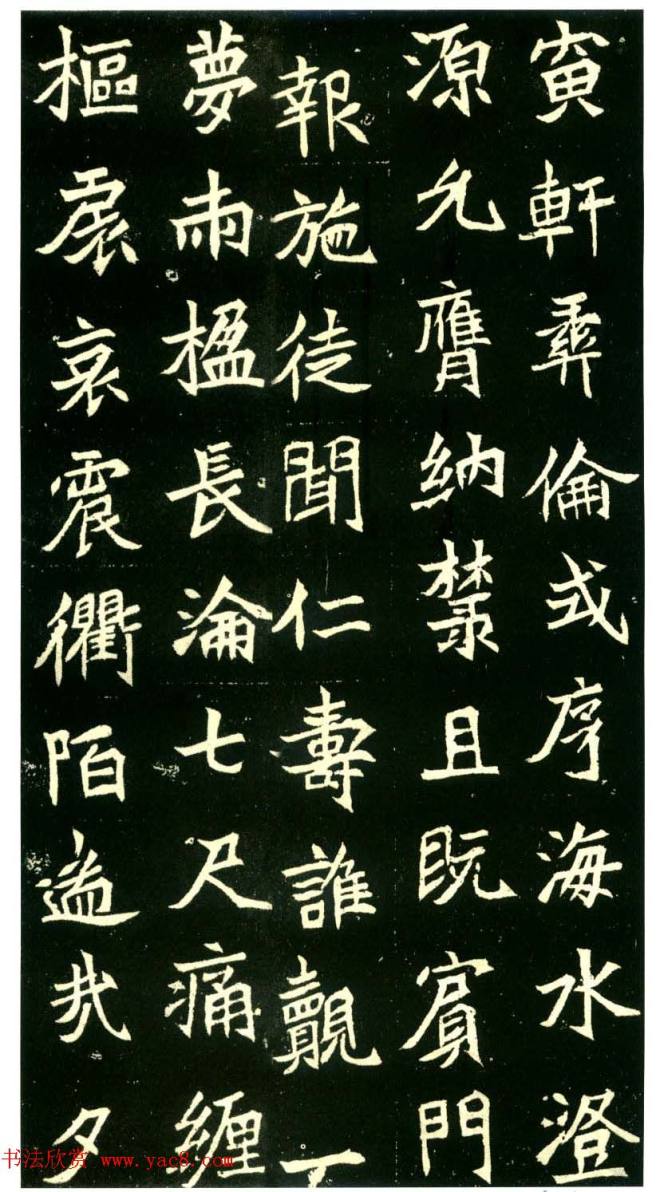 寅軒彞倫式序海水澄
源允膺納麓且既賓門
報施徒聞仁壽誰覿丁
夢兩楹長淪七尺痛纏
樞扆哀震衢陌夕
书法欣赏 www.yac8.com